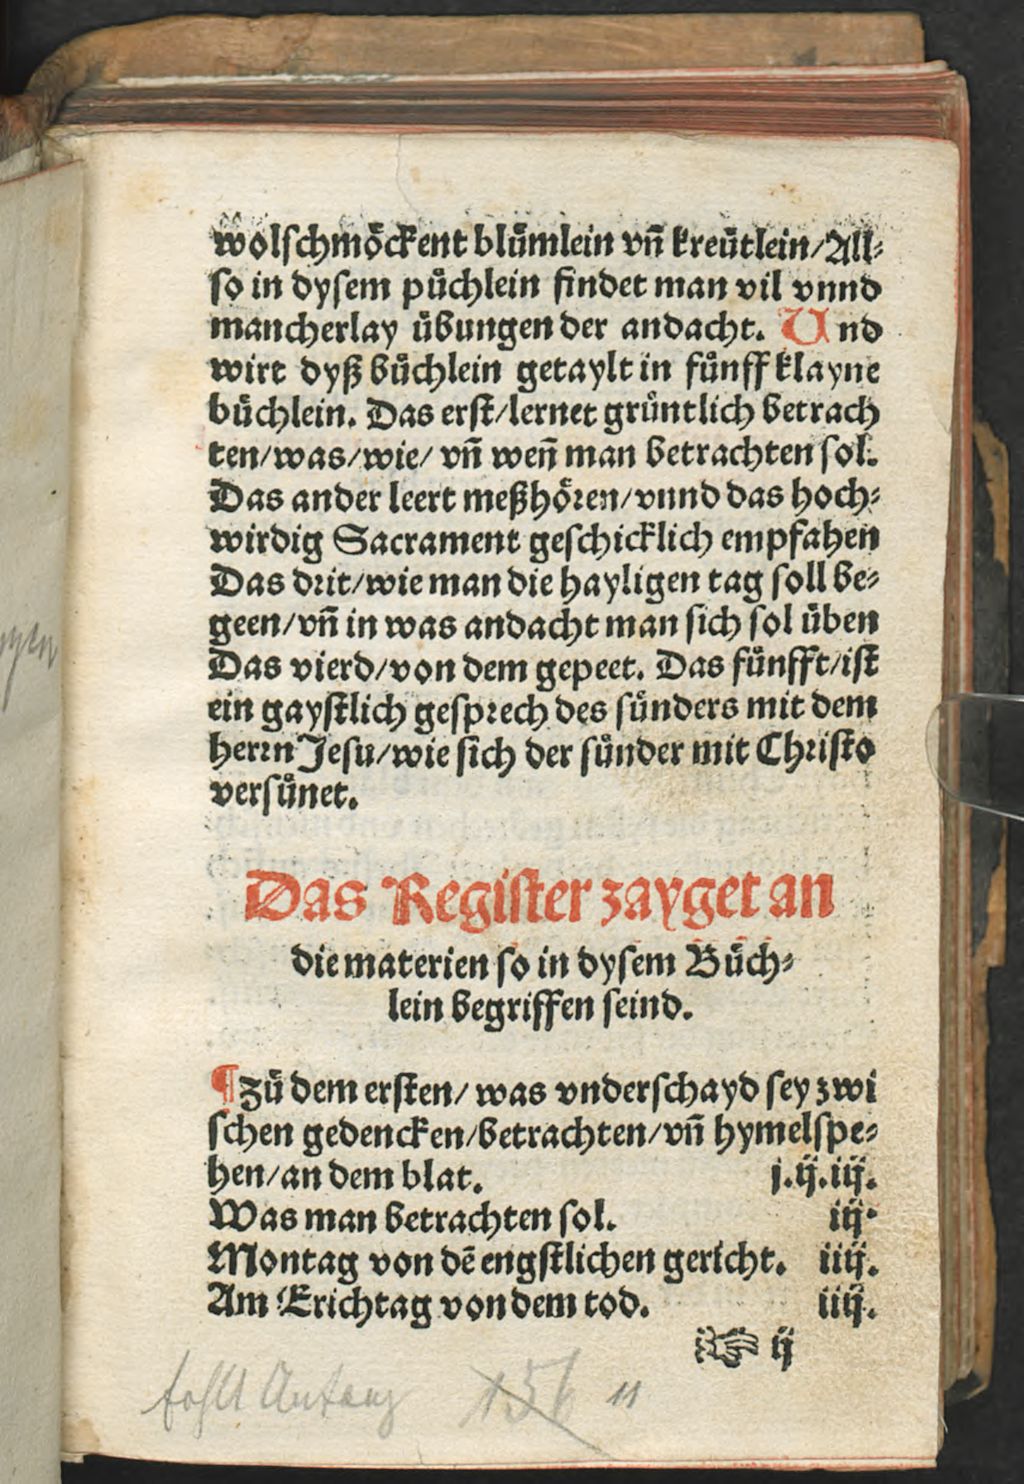 wolschmöckent blůmlein vñ kreütlein/All⸗
so in dysem půchlein findet man vil vnnd
mancherlay übungen der andacht. Und
wirt dyß bůchlein getaylt in fünff klayne
bůchlein. Das erst/lernet grüntlich betrach
ten/was/wie/ vñ weñ man betrachten sol.
Das ander leert meßhören/vnnd das hoch⸗
wirdig Sacrament geschicklich empfahen
Das drit/wie man die hayligen tag soll be⸗
geen/vñ in was andacht man sich sol üben
Das vierd/von dem gepeet. Das fünfft/ist
ein gaystlich gesprech des sünders mit dem
herrn Jesu/wie sich der sünder mit Christo
versünet.
Das Register zayget an
die materien so in dysem Bůch⸗
lein begriffen seind.
¶Zů dem ersten/ was vnderschayd sey zwi
schen gedencken/betrachten/vñ hymelspe⸗
hen/an dem blat. j.ij.iij.
Was man betrachten sol. iij.
Montag von dē engstlichen gericht. iiij.
Am Erichtag von dem tod. iiij.
☞ ij
fehlt Anfang 156 11